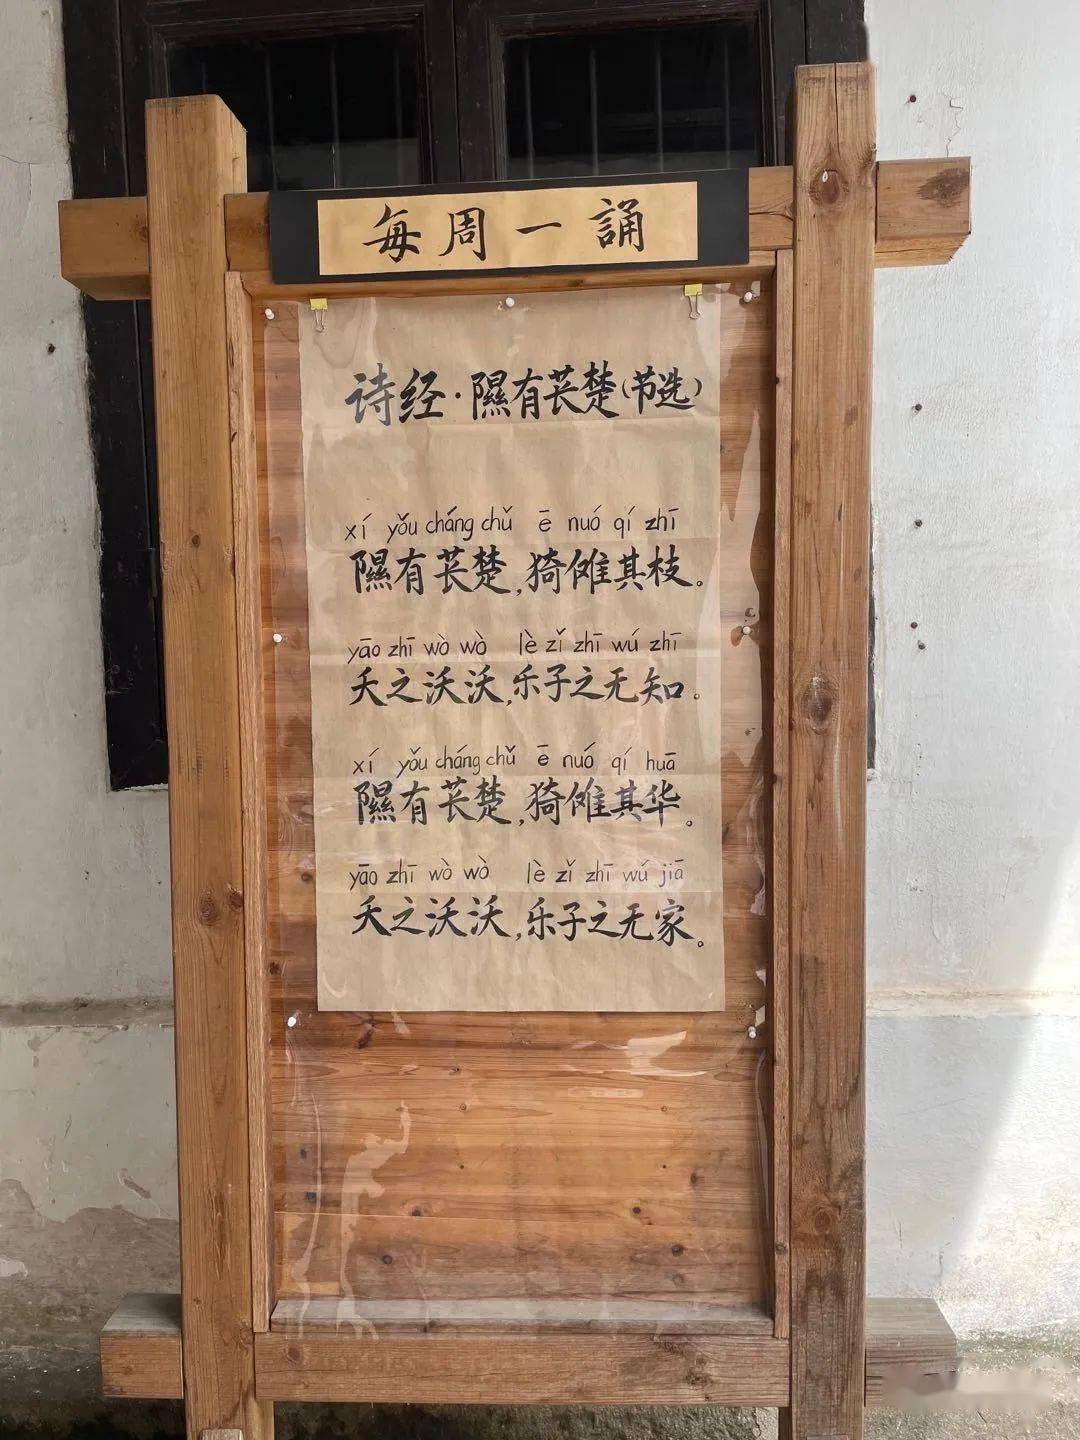 每周一誦
诗经·隰有苌楚(节选)
xí yǒu cháng chǔ ē nuó qí zhī
隰有苌楚,猗傩其枝。
yāo zhī wò wò lè zǐ zhī wú zhī
夭之沃沃,乐子之无知。
xí yǒu cháng chǔ ē nuó qí huā
隰有苌楚,猗傩其华。
yāo zhī wò wò lè zǐ zhī wú jiā
夭之沃沃,乐子之无家。